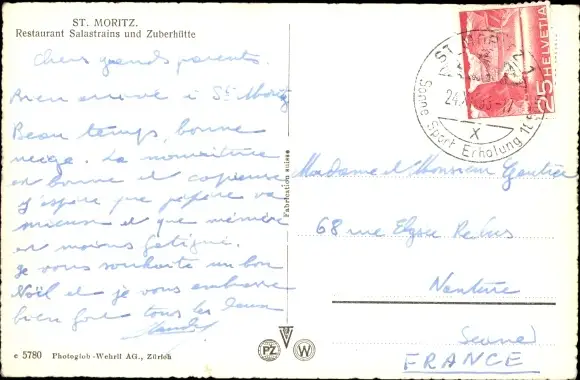 ST. MORITZ.
Restaurant Salastrains und Zuberhütte
Chers grands parents.
Bien arrivé à St Moritz
Beau temps, bonne
neige. La nourriture
est bonne et copieuse
J'espère que pépère va
mieux et que mémère
est moins fatiguée.
Je vous souhaite un bon
Noël et je vous embrasse
bien fort tous les deux
Fabrication suisse
HELVETIA
25
ST. MORITZ
24.XII
X
Sonne Sport Erholung
Madame et Monsieur Gautier
68 rue Elysée Reclus
Nanterre
Seine
FRANCE
PZ
W
e 5780 Photoglob-Wehrli AG., Zürich